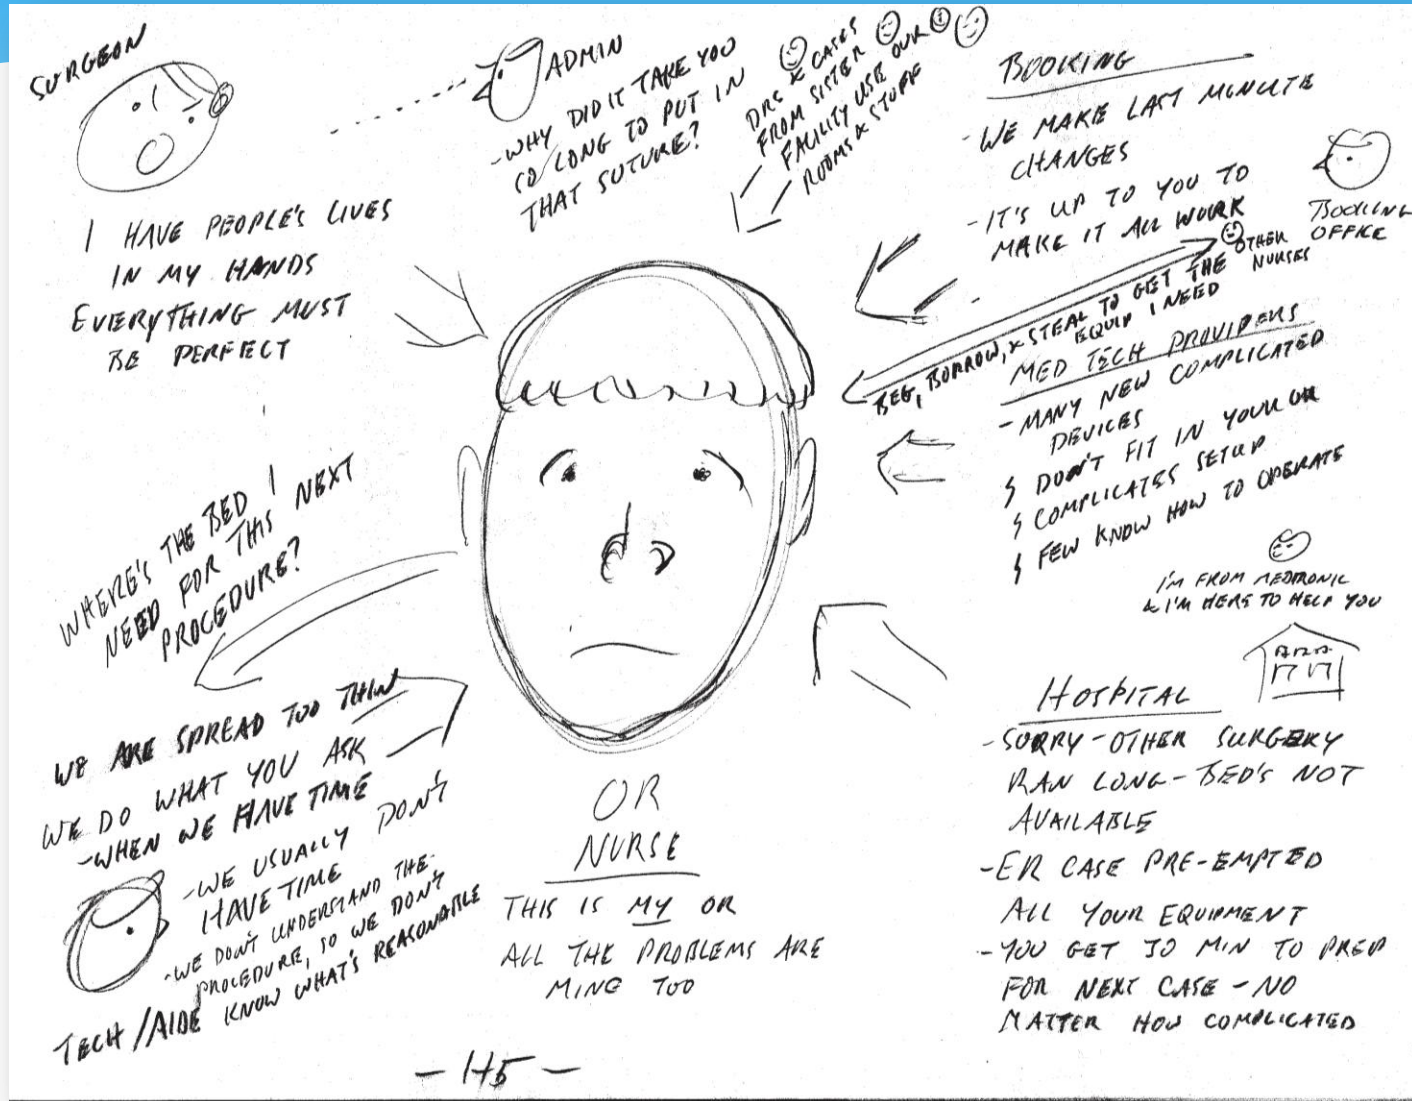 SURGEON
I HAVE PEOPLE'S LIVES
IN MY HANDS
EVERYTHING MUST
BE PERFECT
ADMIN
-WHY DID IT TAKE YOU
SO LONG TO PUT IN
THAT SUTURE?
DRS & CASES
FROM SISTER
FACILITY USE OUR
ROOMS & STUFF
BOOKING
-WE MAKE LAST MINUTE
CHANGES
-IT'S UP TO YOU TO
MAKE IT ALL WORK
BOOKING
OFFICE
OTHER
NURSES
BEG, BORROW, & STEAL TO GET THE
EQUIP I NEED
MED TECH PROVIDERS
-MANY NEW COMPLICATED
DEVICES
DON'T FIT IN YOUR OR
COMPLICATES SETUP
FEW KNOW HOW TO OPERATE
I'M FROM MEDTRONIC
& I'M HERE TO HELP YOU
HOSPITAL
-SORRY-OTHER SURGERY
RAN LONG-BED'S NOT
AVAILABLE
-ER CASE PRE-EMPTED
ALL YOUR EQUIPMENT
-YOU GET 30 MIN TO PREP
FOR NEXT CASE-NO
MATTER HOW COMPLICATED
WHERE'S THE BED I
NEED FOR THIS NEXT
PROCEDURE?
WE ARE SPREAD TOO THIN
WE DO WHAT YOU ASK
-WHEN WE HAVE TIME
-WE USUALLY DON'T
HAVE TIME
-WE DON'T UNDERSTAND THE
PROCEDURE, SO WE DON'T
KNOW WHAT'S REASONABLE
TECH/AIDE
OR
NURSE
THIS IS MY OR
ALL THE PROBLEMS ARE
MINE TOO